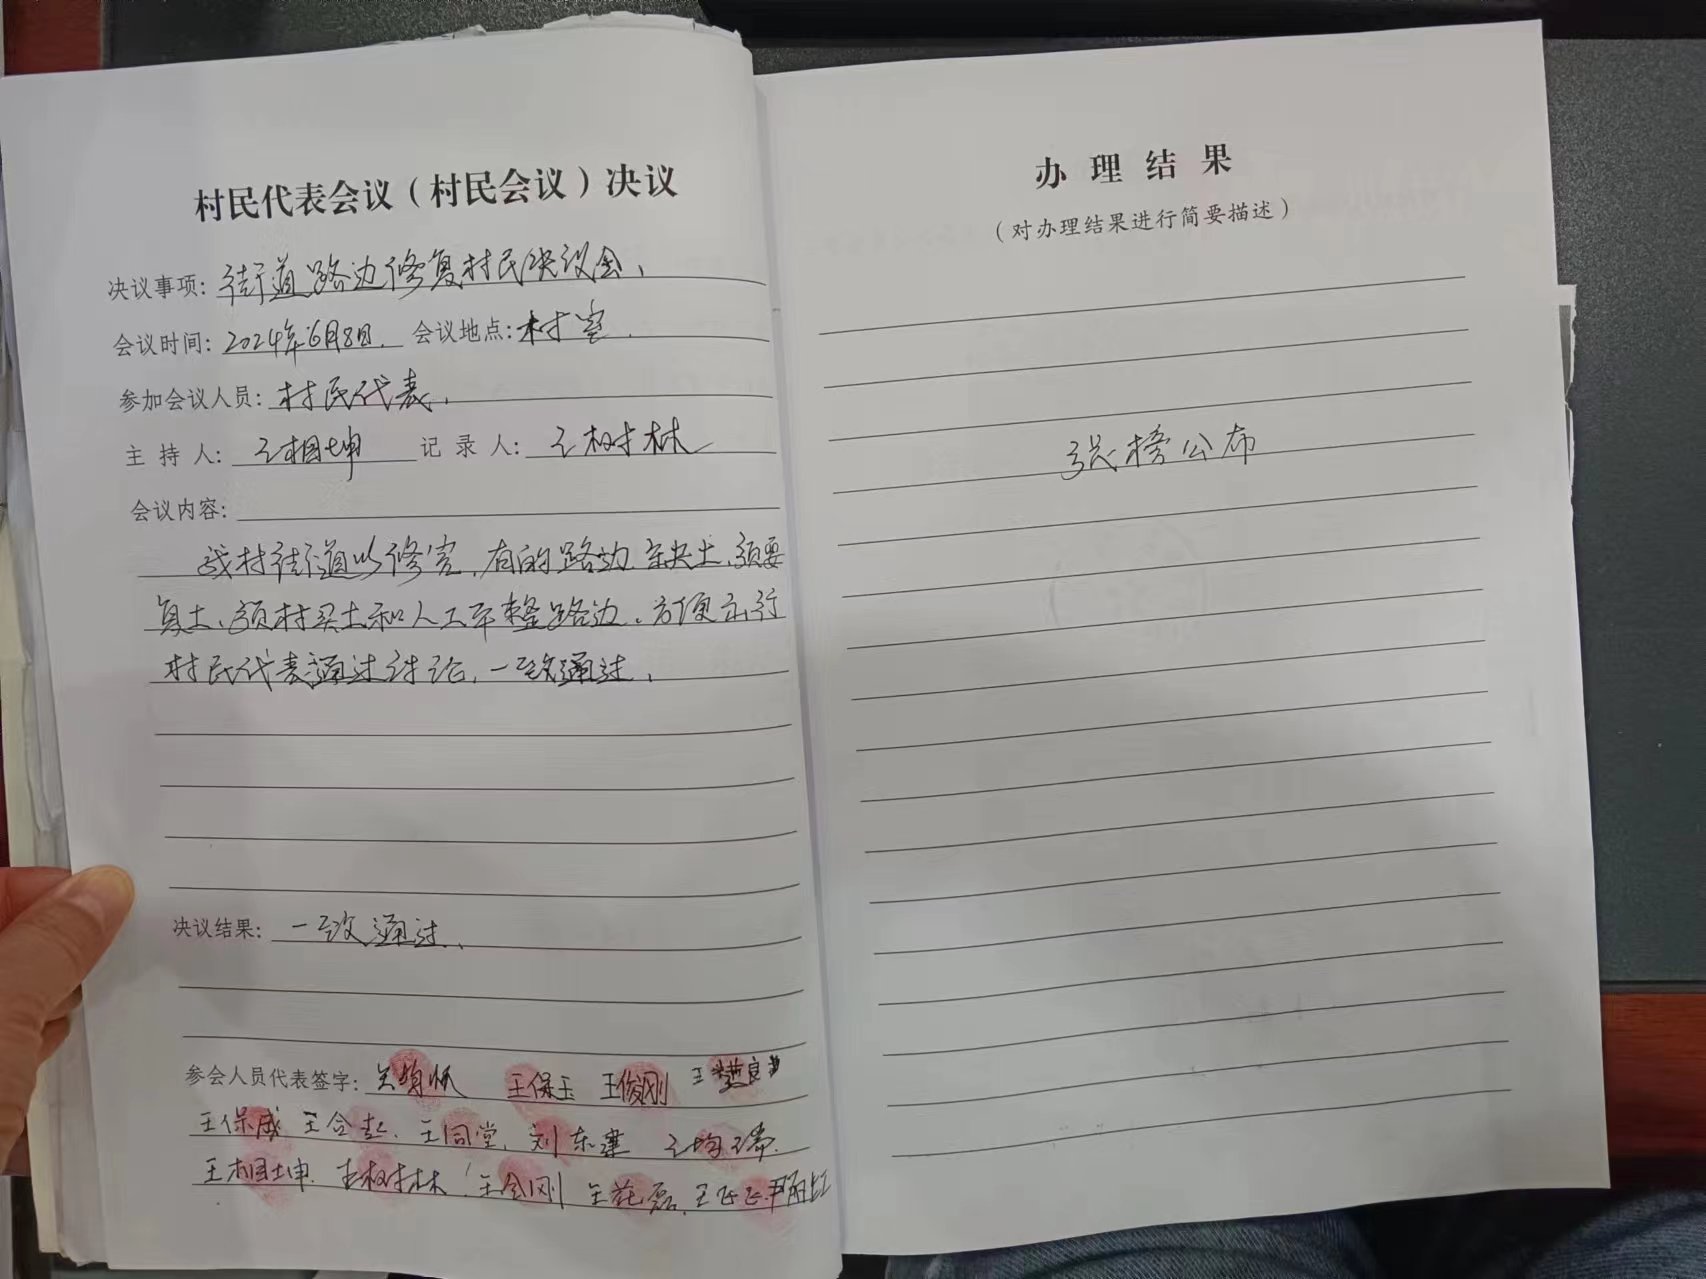 村民代表会议（村民会议）决议
决议事项：街道路边修复村民决议会、
会议时间：2024年6月8日. 会议地点：村室.
参加会议人员：村民代表、
主持人：王相坤 记录人：王树林
会议内容：
我村街道以修完，有的路边缺土、须要
复土、须村买土和人工平整路边。方便出行
村民代表通过讨论，一致通过、
决议结果：一致通过、
参会人员代表签字：王保玉 王俊刚
王保成 王合赶、王同堂、刘东建
王相坤. 王树林 王会刚 王花磊、王飞飞
办理结果
（对办理结果进行简要描述）
张榜公布